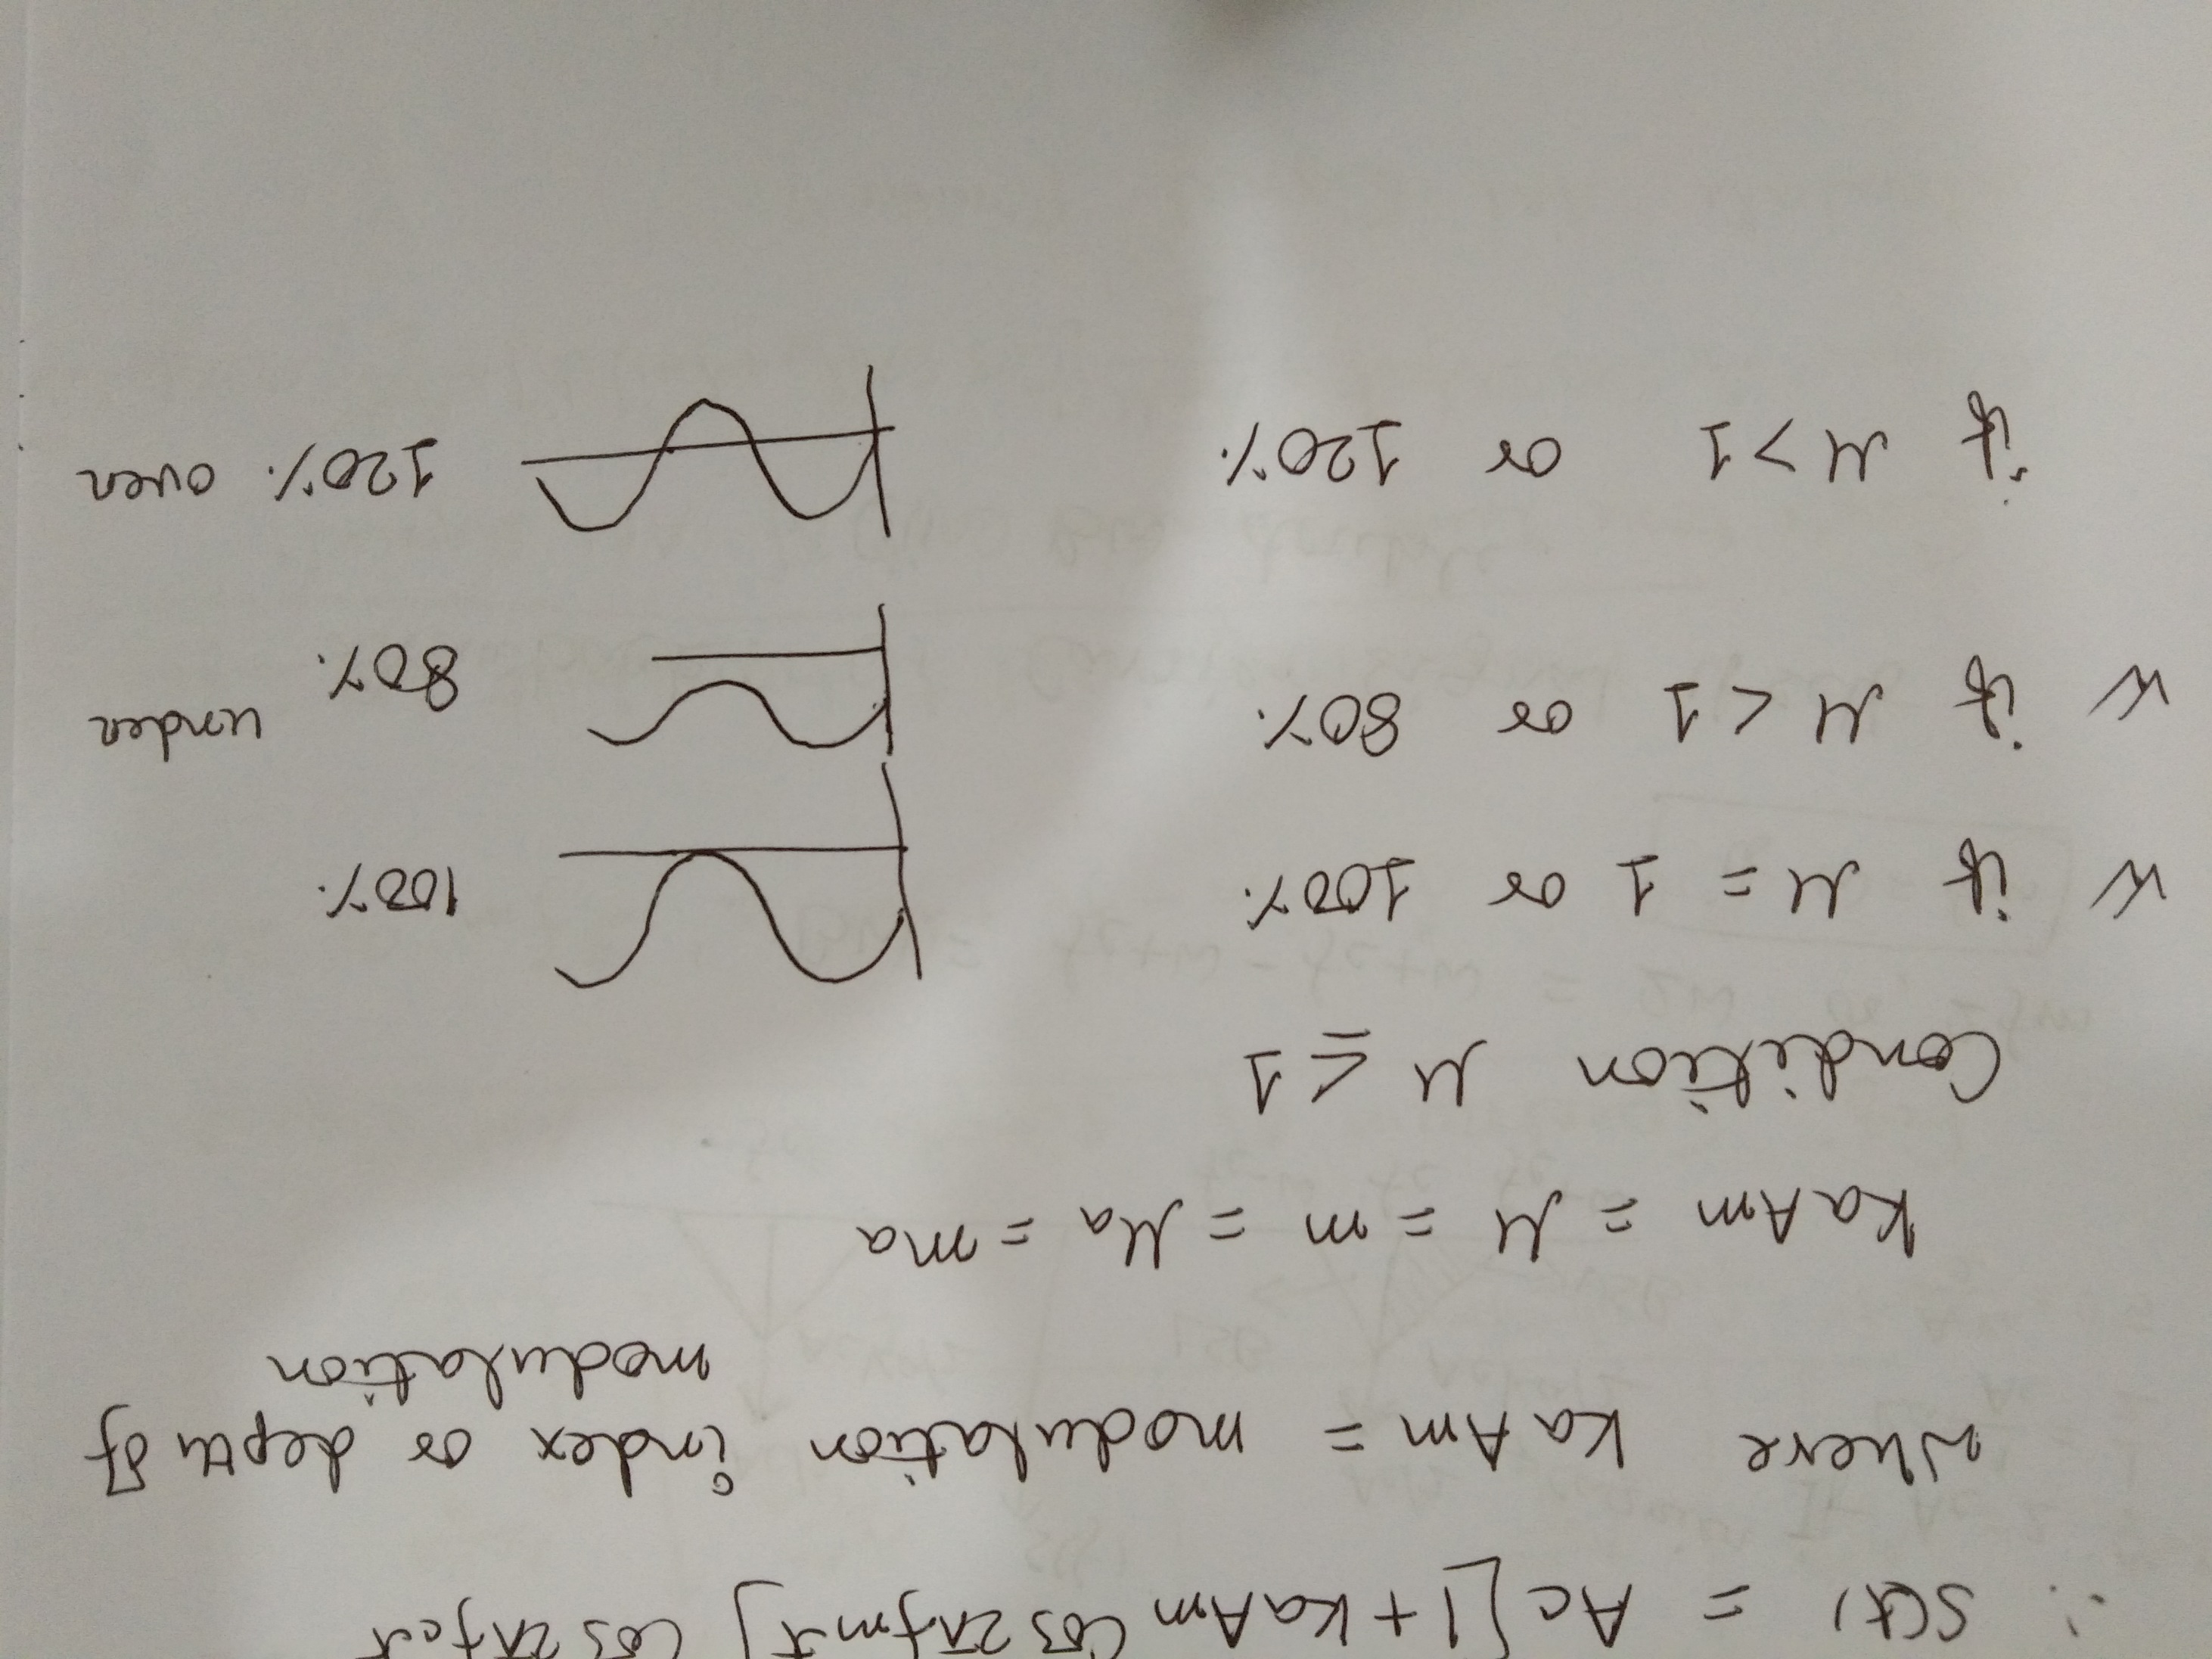 ∴ S(t) = Ac [1 + kaAm Cos 2πfmt] Cos 2πfct
where kaAm = modulation index or depth of
modulation
kaAm = μ = m = μa = ma
Condition μ ≤ 1
if μ = 1 or 100% 100%
if μ < 1 or 80% 80% under
if μ > 1 or 120% 120% over